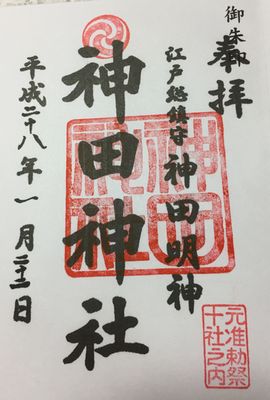 御朱印
奉拝
江戸総鎮守 神田明神
神田神社
平成二十八年一月二十三日
神田神社
元准勅祭
十社之内